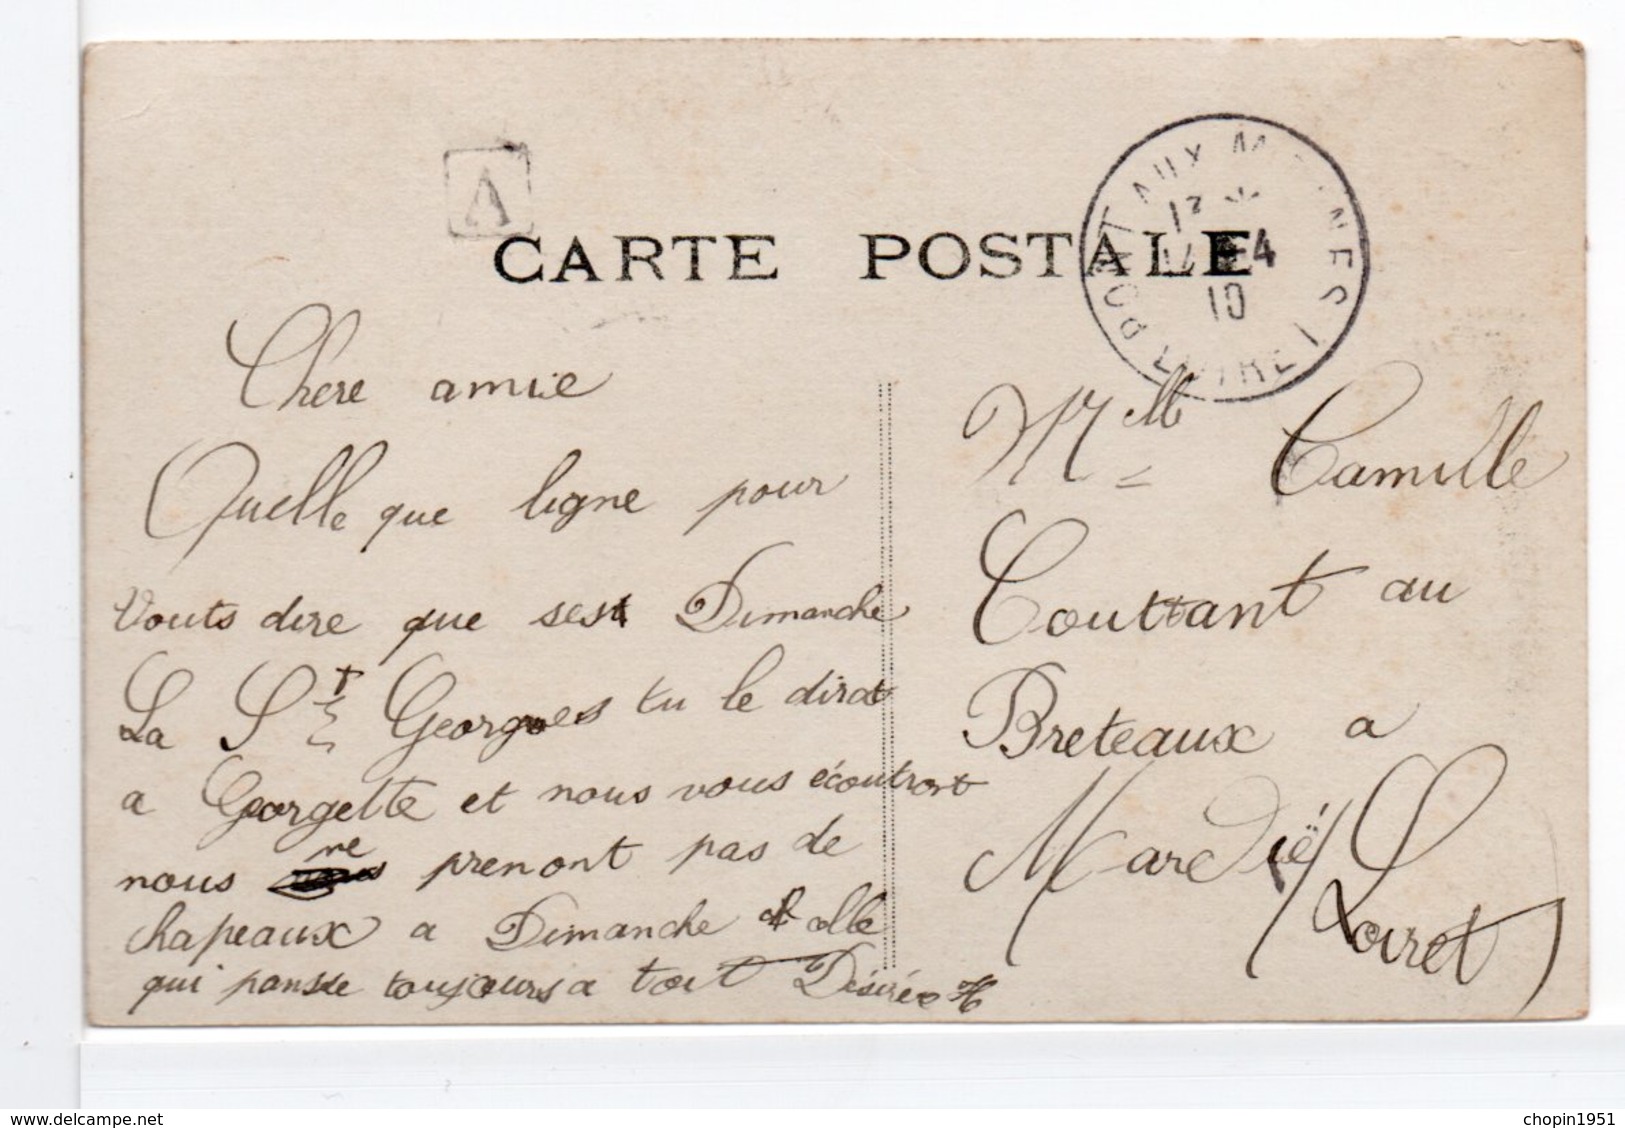 A
CARTE POSTALE
PONT AUX MOINES LOIRET
13 *
4
10
Chere amie
Quelle que ligne pour
Vouts dire que sest Dimanche
La St Georges tu le dirat
a Georgette et nous vous écoutront
nous ne prenont pas de
chapeaux a Dimanche
qui panse toujours a toit Désirée H
Mll Camille
Couttant au
Breteaux a
Mardié
Loiret
delcampe.net
chopin1951